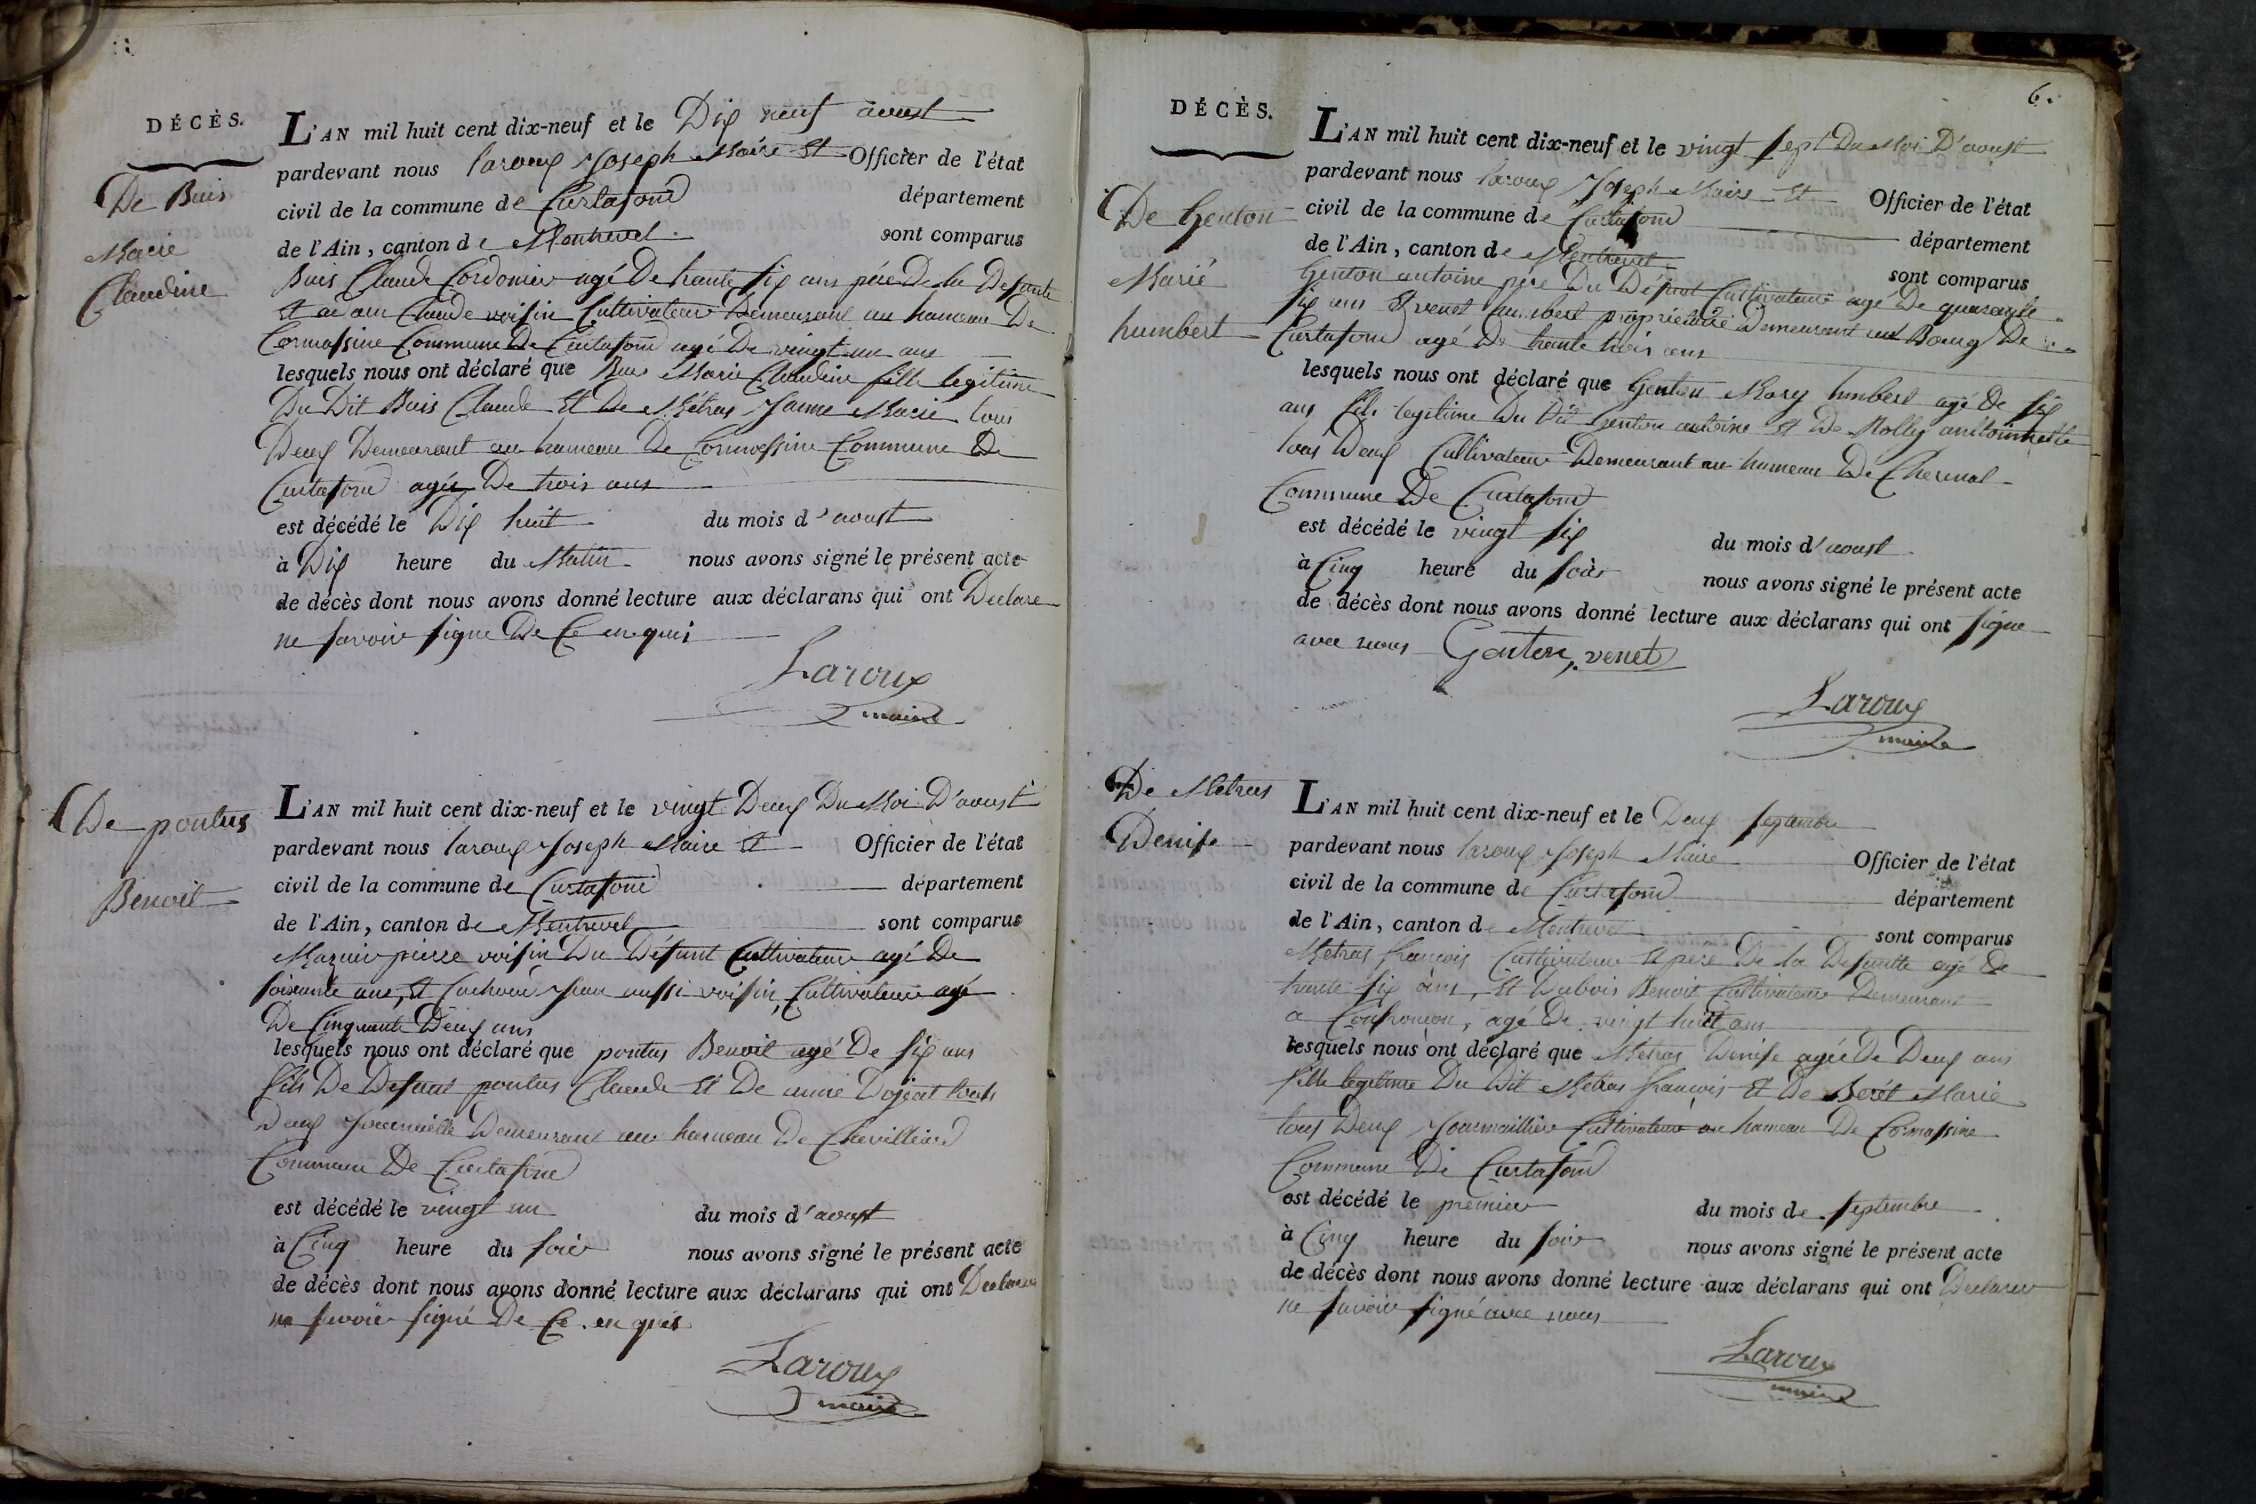 DÉCÈS.
De Buis
Marie
Claudine
L'AN mil huit cent dix-neuf et le Dix neuf aoust
pardevant nous laroux Joseph Maire Et Officier de l'état
civil de la commune de Curtafond département
de l'Ain, canton de Montrevel sont comparus
Buis Claude Cordonier agé De trante six ans père De la Defunte
Et adam Claude voisin Cultivateur Demeurant au hameau De
Cormassine Commune De Curtafond agé De vingt un ans
lesquels nous ont déclaré que Buis Marie Claudine fille legitime
Du Dit Buis Claude Et De Métras Janne Marie tous
Deux Demeurant au hameau De Cormassine Commune De
Curtafond agée De trois ans
est décédé le Dix huit du mois d'aoust
à Dix heure du Matin nous avons signé le présent acte
de décès dont nous avons donné lecture aux déclarans qui ont Declare
ne savoir signe De Ce enquis
Laroux
maire
De pontus
Benoit
L'AN mil huit cent dix-neuf et le vingt Deux Du Moi D'aoust
pardevant nous laroux Joseph Maire Et Officier de l'état
civil de la commune de Curtafond département
de l'Ain, canton de Montrevel sont comparus
Mazuir pierre voisin Du Défunt Cultivateur agé De
soixante ans, Et Cochard Jean aussi voisin, Cultivateur agé
De Cinquante Deux ans
lesquels nous ont déclaré que pontus Benoit agé De six ans
fils De Defunt pontus Claude Et De anne touts
Deux Demeurant au hameau De Chevilliard
Commune De Curtafond
est décédé le vingt un du mois d'aoust
à Cinq heure du soir nous avons signé le présent acte
de décès dont nous avons donné lecture aux déclarans qui ont Declare
ne savoir signé De Ce enquis
Laroux
maire
6.
DÉCÈS.
De Genton
Marié
humbert
L'AN mil huit cent dix-neuf et le vingt sept Du Moi D'aoust
pardevant nous laroux Joseph Maire Et Officier de l'état
civil de la commune de Curtafond département
de l'Ain, canton de Montrevel sont comparus
Genton antoine père Du Défunt Cultivateur agé De quarante
six ans Et venet humbert propriétaire Demeurant au Bourg De
Curtafond agé De trante trois ans
lesquels nous ont déclaré que Genton Mary humbert agé De six
ans fils legitime Du Dit Genton antoine Et De Rolly antoinette
tous Deux Cultivateur Demeurant au hameau De Cherinal
Commune De Curtafond
est décédé le vingt six du mois d'aoust
à Cinq heure du soir nous avons signé le présent acte
de décès dont nous avons donné lecture aux déclarans qui ont signe
avec nous Genton, venet
Laroux
maire
De Metras
Denise
L'AN mil huit cent dix-neuf et le Deux septembre
pardevant nous laroux Joseph Maire Officier de l'état
civil de la commune de Curtafond département
de l'Ain, canton de Montrevel sont comparus
Metras francois Cultivateur Et père De la Defunte agé De
trante six ans, Et Dubois Benoit Cultivateur Demeurant
a Confrancon, agé De vingt huit ans
lesquels nous ont déclaré que Metras Denise agée De Deux ans
fille legitime Du Dit Metras francois Et De Berét Marie
tous Deux Cultivateur au hameau De Cormassine
Commune De Curtafond
est décédé le premier du mois de septembre
à Cinq heure du soir nous avons signé le présent acte
de décès dont nous avons donné lecture aux déclarans qui ont Declare
ne savoir signé avec nous
Laroux
maire